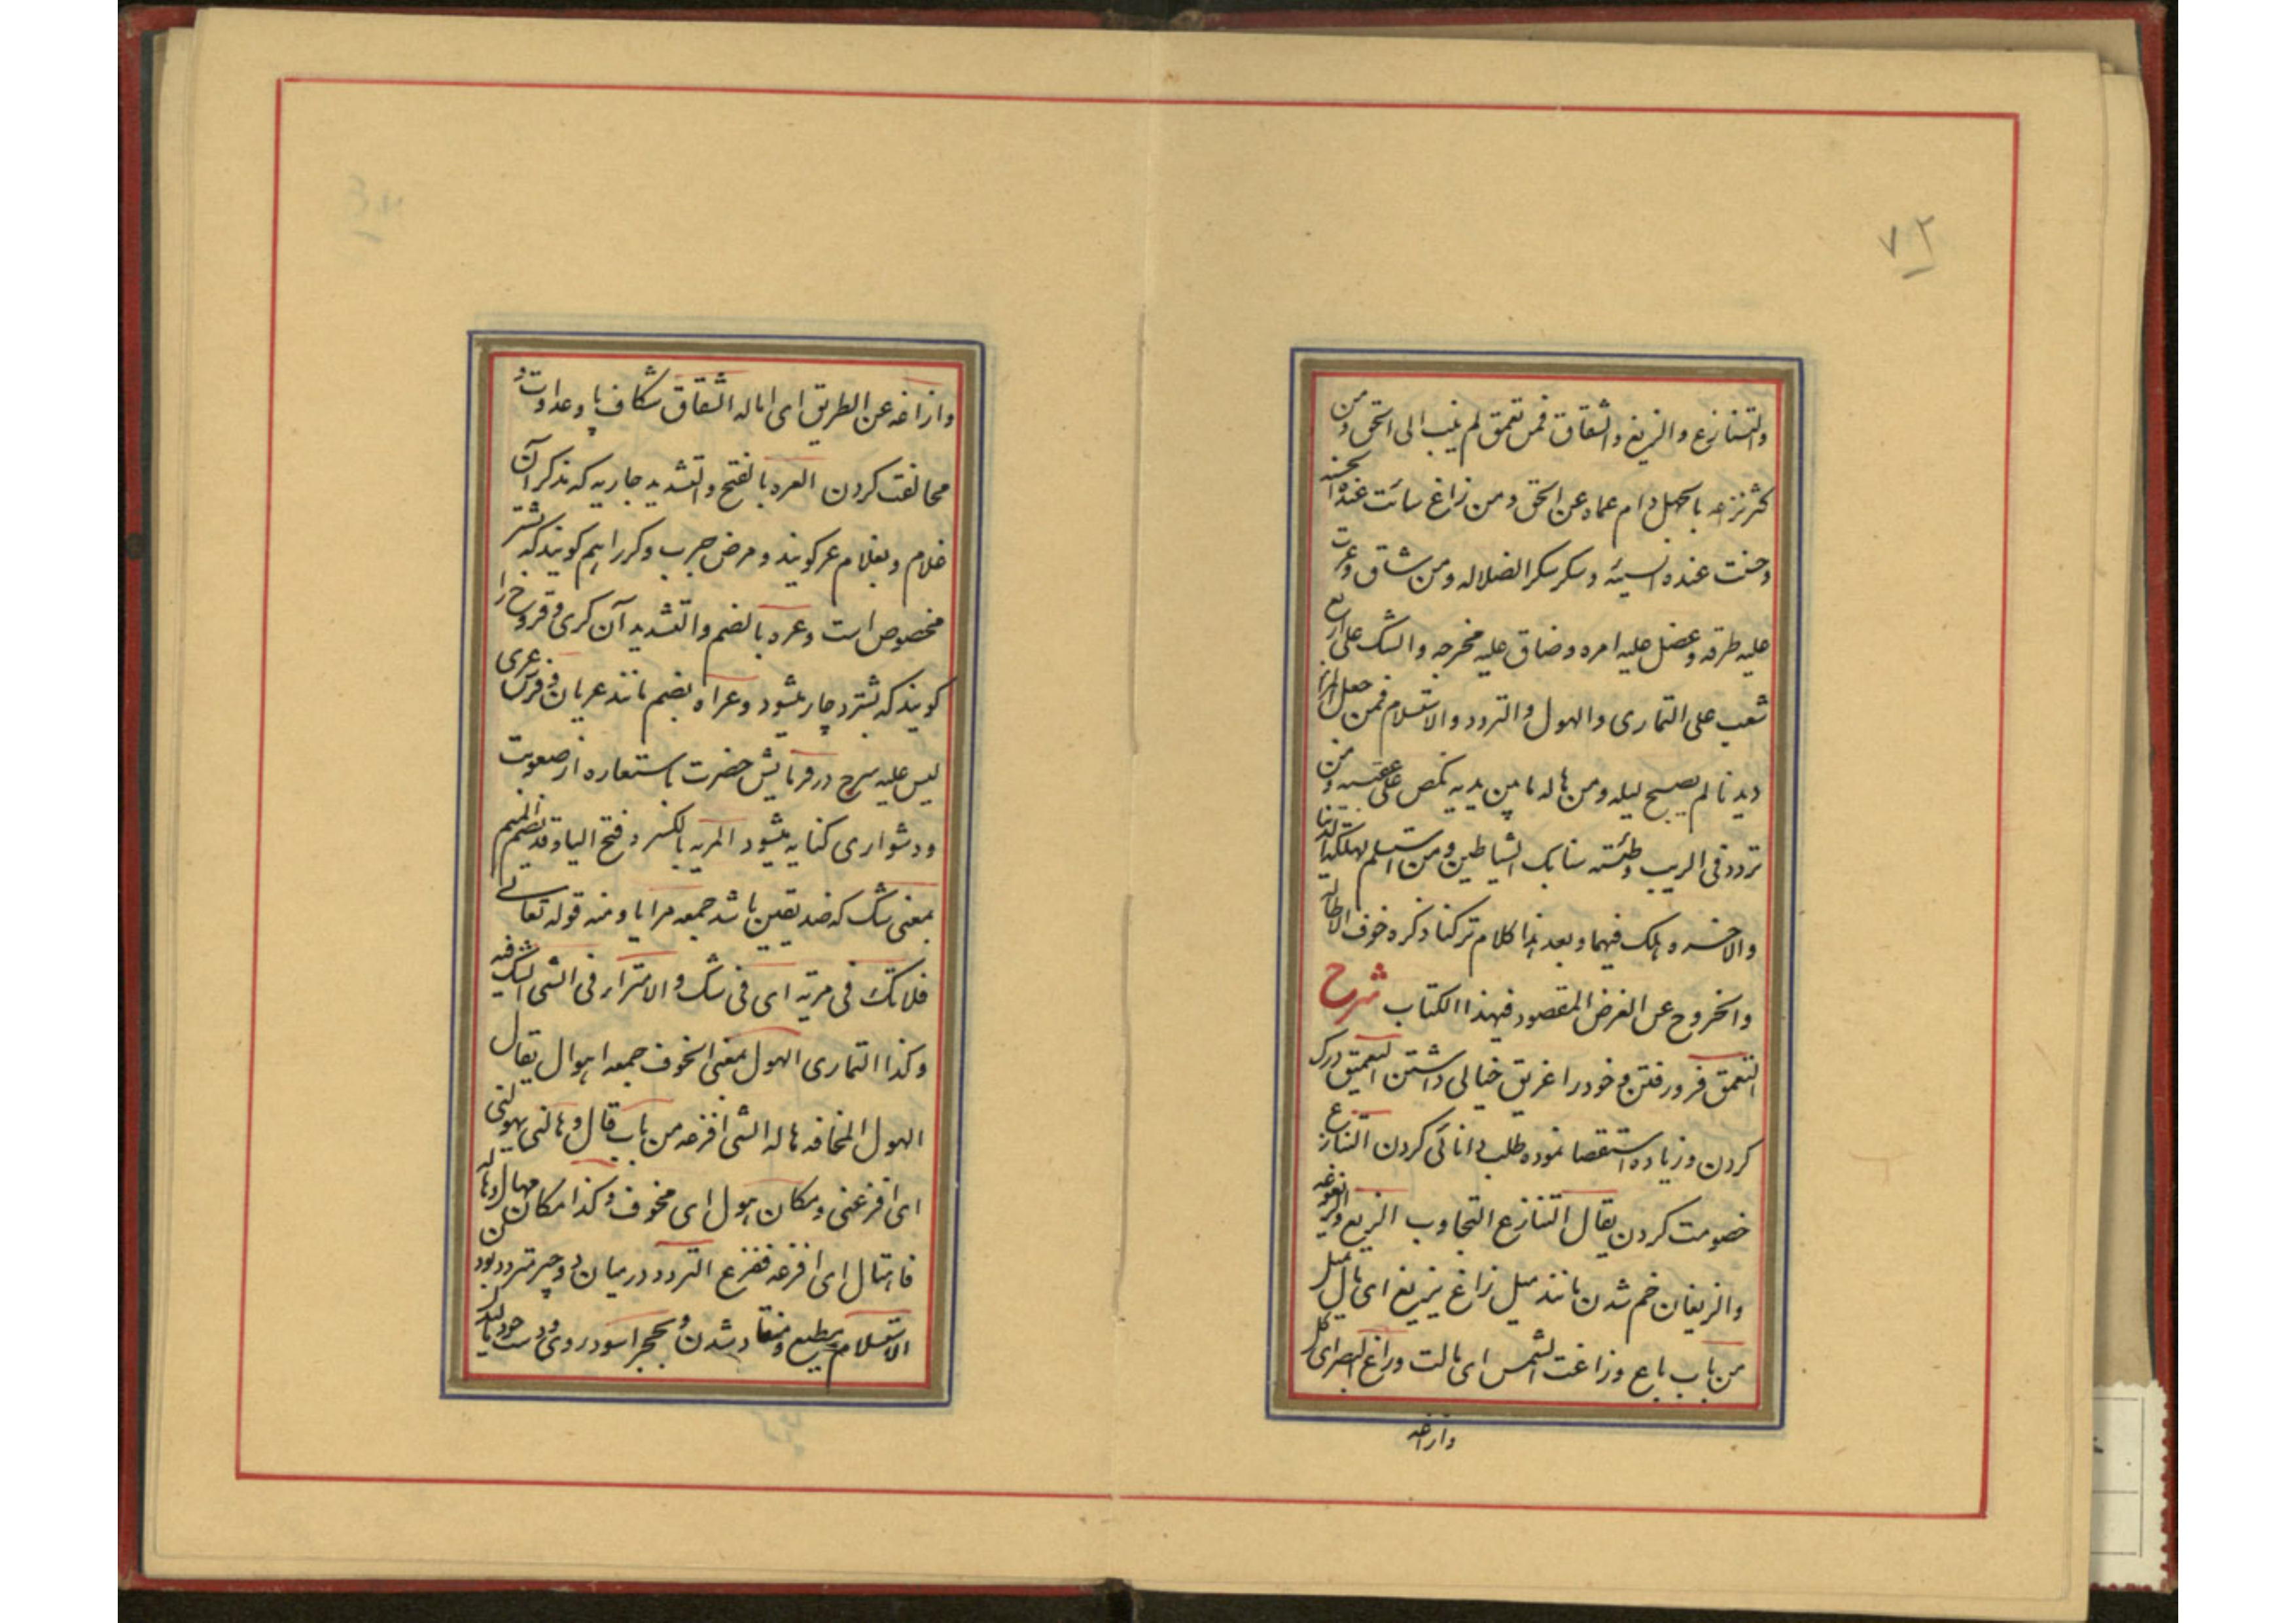 ۷۲
والتنازع والزیغ والشقاق فمن تعمق لم ینب الی الحق و من
کثر نزاعه بالجهل دام عماه عن الحق و من زاغ سائت عنده الحسنه
و حسنت عنده السیئه و سکر سکر الضلاله و من شاق وعرت
علیه طرقه و عضل علیه امره و ضاق علیه مخرجه والشک علی اربع
شعب علی التماری والهول والتردد والاستسلام فمن جعل المراء
دیدنا لم یصبح لیله و من هاله ما بین یدیه نکص علی عقبیه و من
تردد فی الریب وطئته سنابک الشیاطین و من استسلم لهلکة الدنیا
والاخره هلک فیهما و بعد هذا کلام ترکنا ذکره خوف الاطاله
والخروج عن الغرض المقصود فی هذا الکتاب شرح
التعمق فرو رفتن و خود را غریق خیالی داشتن التعمیق درک
کردن و زیاده استقصا نموده طلب دانائی کردن التنازع
خصومت کردن یقال التنازع التجاوب الزیغ
والزیغان خم شدن مانند میل زاغ یزیغ ای مال یمیل
من باب باع و زاغت الشمس ای مالت و زاغ البصر ای کل
وازاغه
وازاغه عن الطریق ای اماله الشقاق شکاف پا و عداوت و
مخالفت کردن العره بالفتح والتشدید جاریه که بذکر آن
غلام و بغلام عر کویند و مرض جرب و کر را هم کویند که بشتر
مخصوص است و عره بالضم والتشدید آن کری و قروح را
کویند که بشتر دچار میشود و عراه بضم مانند عریان و فرس عری
لیس علیه سرج در فرمایش حضرت باستعاره از صعوبت
و دشواری کنایه میشود المریه بالکسر و فتح الیا و قد یضم المیم
بمعنی شک که ضد یقین باشد جمعه مرایا و منه قوله تعالی
فلا تک فی مریة ای فی شک والامتراء فی الشی الشک فیه
و کذا التماری الهول بمعنی الخوف جمعه اهوال یقال
الهول المخافه هاله الشی افزعه من باب قال و هالنی یهولنی
ای افزعنی و مکان هول ای مخوف و کذا مکان مهال و هاله
فاهتال ای افزعه ففزع التردد در میان دو چیز متردد بودن
الاستسلام مطیع و منقاد شدن و بحجر اسود روی و دست خود مالیدن